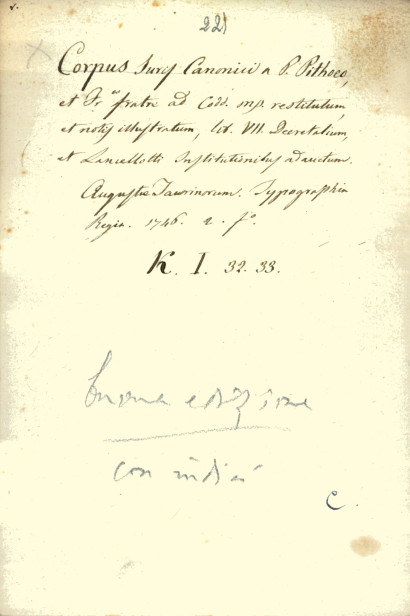 22)
Corpus Juris Canonici a P. Pithoeo,
et Fr.co fratre ad Codd. msp. restitutum,
et notis illustratum, lib. VII. Decretalium,
et Lancellotti Institutionibus adauctum.
Augustae Taurinorum. Typographia
Regia. 1746. 2. fo.
K. I. 32. 33.
buona edizione
con indici
C.